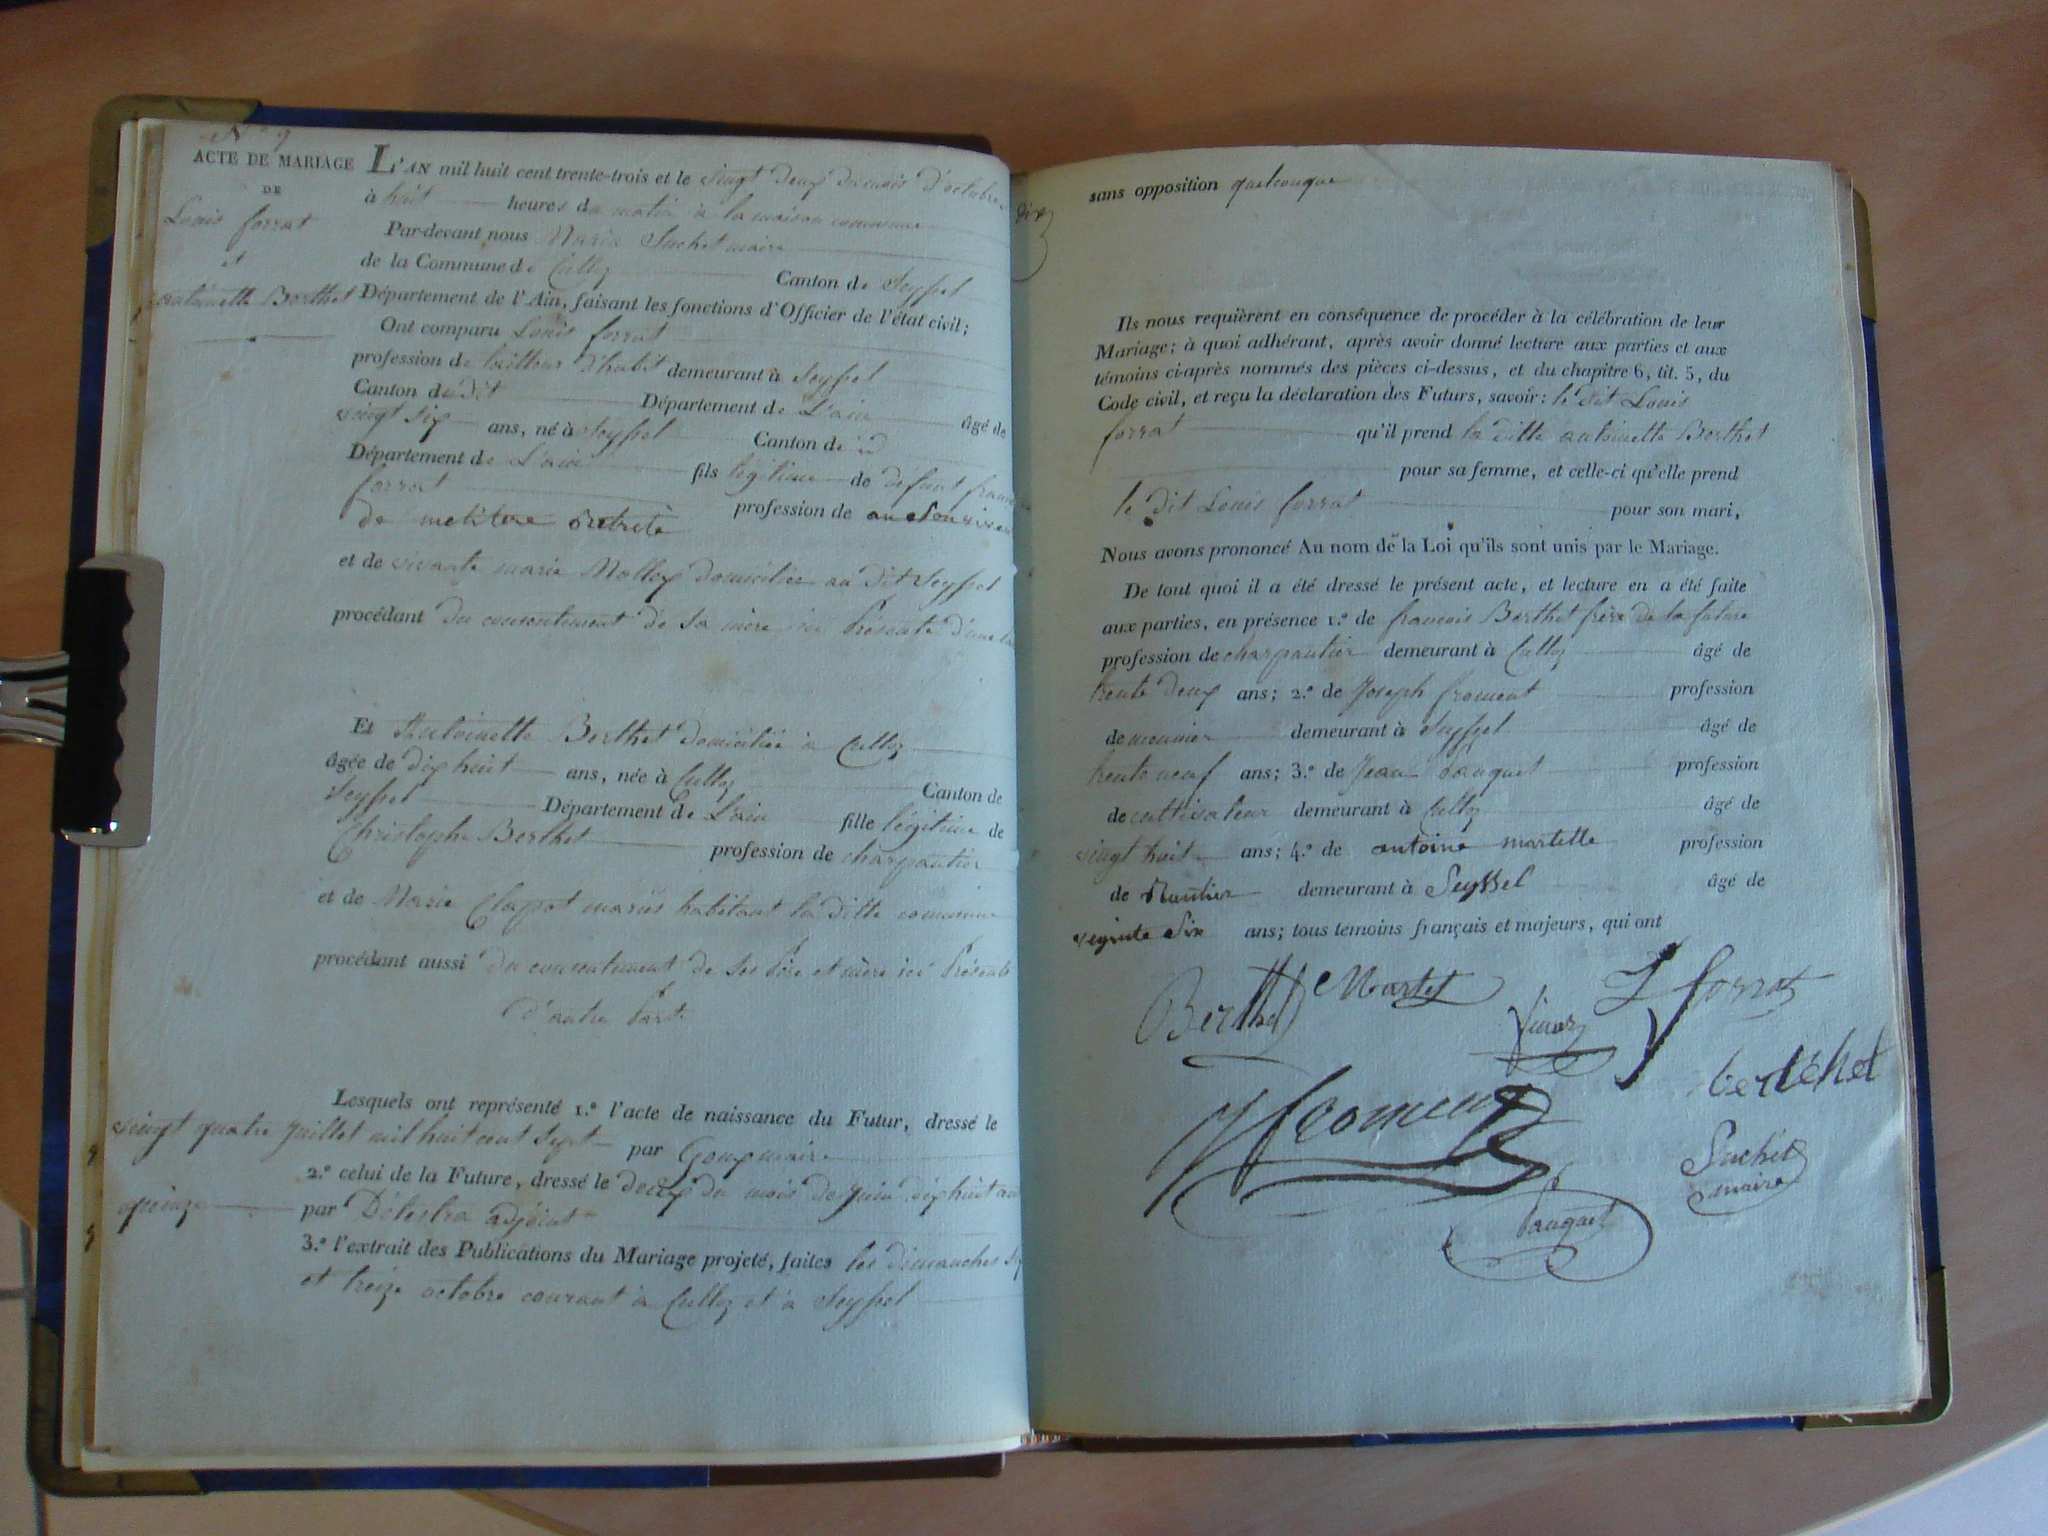 N° 9
ACTE DE MARIAGE
DE
Louis forrat
et
antoinette Berthet
L'AN mil huit cent trente-trois et le vingt deux du mois d'octobre
à huit heures du matin à la maison commune
Par-devant nous Marin Suchet maire
de la Commune de Culloz Canton de Seyssel
Département de l'Ain, faisant les fonctions d'Officier de l'état civil;
Ont comparu Louis forrat
profession de tailleur d'habit demeurant à Seyssel
Canton du dit Département de L'ain âgé de
vingt six ans, né à Seyssel Canton de id
Département de L'ain fils légitime de défunt
forrat profession de
de metitere retreté
et de vivante marie Molloz domiciliée au dit Seyssel
procédant du consentement de sa mère ici Présente d'une
Et Antoinette Berthet domiciliée à Culloz
âgée de dix huit ans, née à Culloz Canton de
Seyssel Département de L'ain fille légitime de
Christophe Berthet profession de charpantier
et de Marie Clapot mariés habitant la ditte commune
procédant aussi du consentement de ses Père et mère ici Présents
d'autre Part.
Lesquels ont représenté 1.° l'acte de naissance du Futur, dressé le
vingt quatre Juillet mil huit cent sept par Gouy maire
2.° celui de la Future, dressé le deux du mois de Juin dix huit cent
quinze par Délestra adjoint
3.° l'extrait des Publications du Mariage projeté, faites les dimanches six
et treize octobre courant à Culloz et à Seyssel
dix
sans opposition quelconque
Ils nous requièrent en conséquence de procéder à la célébration de leur
Mariage; à quoi adhérant, après avoir donné lecture aux parties et aux
témoins ci-après nommés des pièces ci-dessus, et du chapitre 6, tit. 5, du
Code civil, et reçu la déclaration des Futurs, savoir: le dit Louis
forrat qu'il prend la ditte antoinette Berthet
pour sa femme, et celle-ci qu'elle prend
le dit Louis forrat pour son mari,
Nous avons prononcé Au nom de la Loi qu'ils sont unis par le Mariage.
De tout quoi il a été dressé le présent acte, et lecture en a été faite
aux parties, en présence 1.° de francois Berthet frère de la future
profession de charpantier demeurant à Culloz âgé de
trente deux ans; 2.° de Joseph froment profession
de meunier demeurant à Seyssel âgé de
trente neuf ans; 3.° de Jean pauquet profession
de cultivateur demeurant à Culloz âgé de
vingt huit ans; 4.° de antoine martelle profession
de Rentier demeurant à Seyssel âgé de
ans; tous temoins français et majeurs, qui ont
Berthet Martel L forrat
berthet
J froment
Suchet
maire
Pauquet